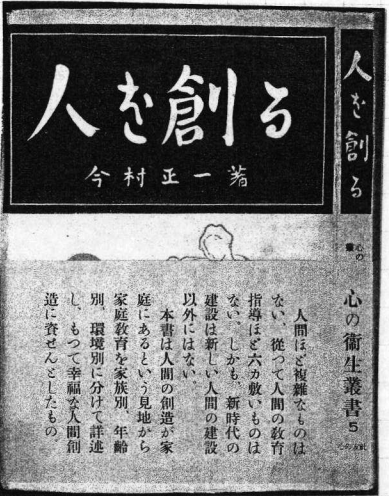 人を創る
今村正一著
人間ほど複雑なものは
ない、従つて人間の教育
指導ほど六カ敷いものは
ない、しかも、新時代の
建設は新しい人間の建設
以外にはない。
本書は人間の創造が家
庭にあるという見地から
家庭教育を家族別、年齢
別、環境別に分けて詳述
し、もつて幸福な人間創
造に資せんとしたもの
人を創る
心の
心の衞生叢書
5